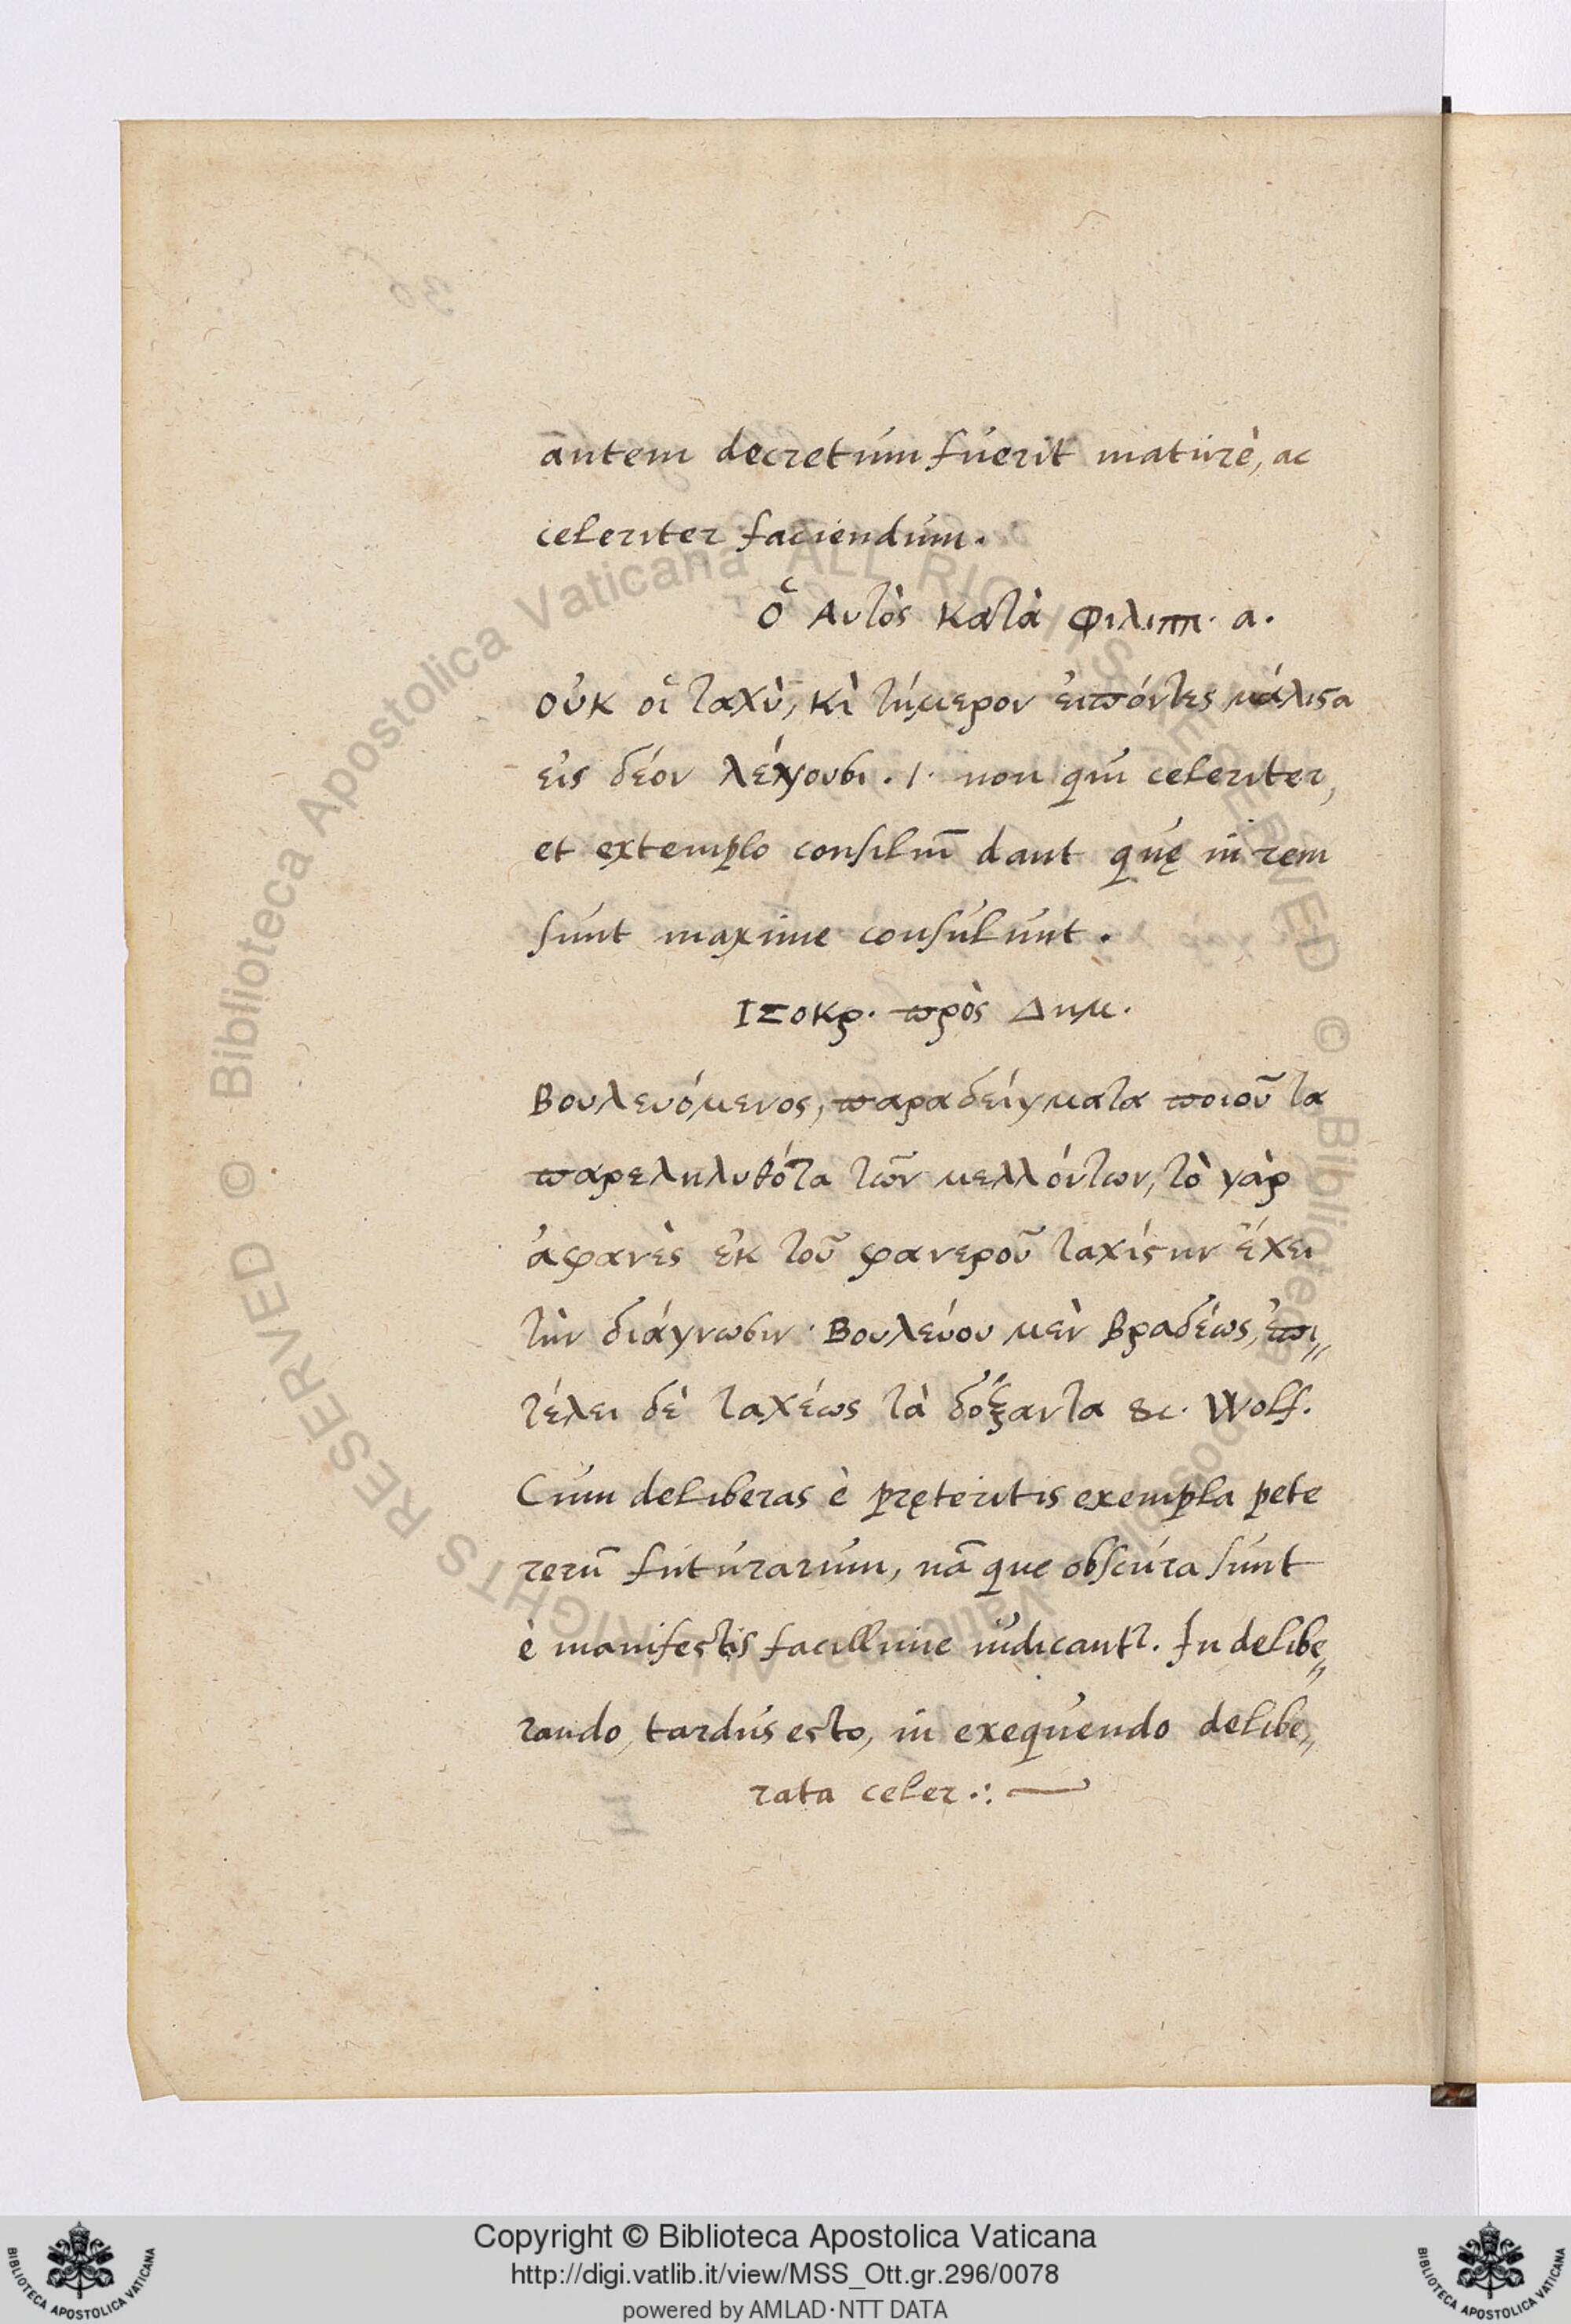 autem decretum fuerit maturè, ac
celeriter faciendum.
ὁ Αυτὸς κατὰ Φιλιππ. α.
οὐκ οἱ ταχὺ, κὶ τήμερον ἐιπόντες μάλιϛα
εἰς δέον λέγουσι. /. non qui celeriter,
et extemplo consiliũ dant quę in rem
sunt maxime consulunt.
Ισοκρ. πρὸς Δημ.
Βουλευόμενος, παραδείγματα ποιοῦ τα
παρεληλυθότα τῶν μελλόντων, τὸ γὰρ
ἀφανὲς ἐκ τοῦ φανεροῦ ταχίϛην ἔχει
τὴν διάγνωσιν· Βουλεύου μὲν βραδέως, ἐπι„
τέλει δὲ ταχέως τὰ δόξαντα &c. Wolf.
Cum deliberas è pręteritis exempla pete
rerũ futurarum, nã que obscura sunt
è manifestis facillime iudicantr. In delibe„
rando, tardus esto, in exequendo delibe„
rata celer .: —
Copyright © Biblioteca Apostolica Vaticana
http://digi.vatlib.it/view/MSS_Ott.gr.296/0078
powered by AMLAD·NTT DATA